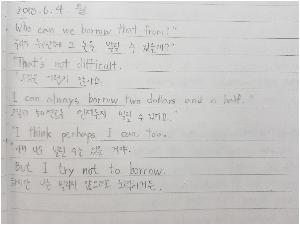 2018. 6. 4 월
"Who can we borrow that from?"
"누구 에게 그 돈을 빌릴 수 있을까?"
"That's not difficult.
"그것은 어렵지 않아요.
I can always borrow two dollars and a half."
언제든지 빌릴 수 있어요."
"I think perhaps I can, too.
빌릴 수는 있을 거야.
But I try not to borrow.
하지만 나는 빌리지 않으려고 노력하거든.